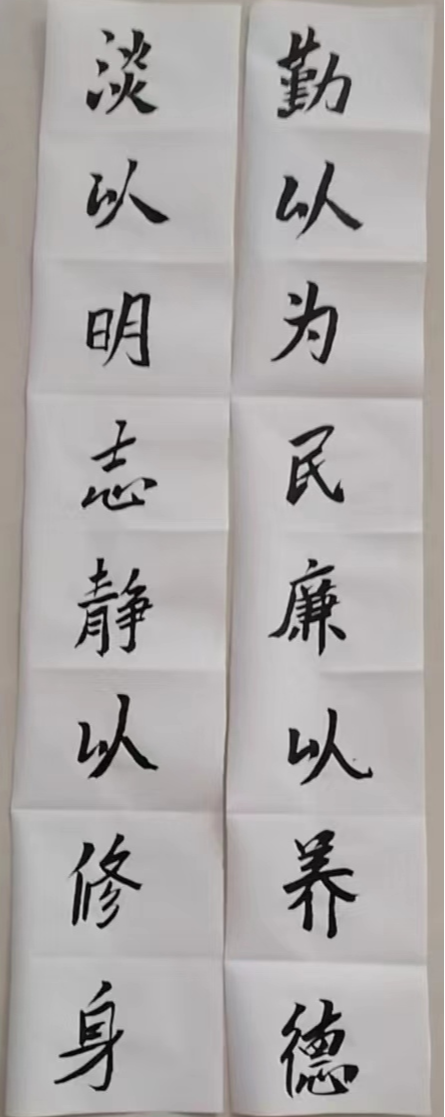 勤以为民廉以养德
淡以明志静以修身